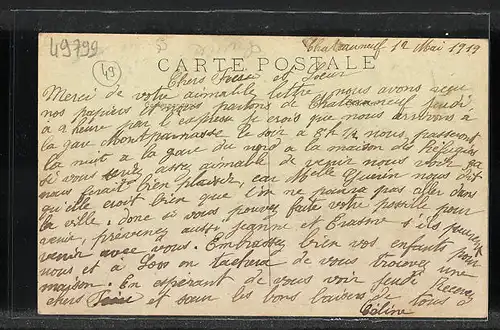 49799
49
Chateauneuf 12 Mai 1919
CARTE POSTALE
Chers Frere et Soeur
Merci de votre aimable lettre, nous avons reçu
nos papiers et nous partons de Chateauneuf Jeudi
a 2 heure par l'express je crois que nous arrivons à
la gare Montparnasse le soir à 8h 1/2 nous, passeront
la nuit a la gare du nord a la maison des Réfugiés
si vous seriez assez aimable de venir nous voir ça
nous ferait bien plaisir, car Melle Guerin nous dit
qu'elle croit bien que l'on ne pourra pas aller dans
la ville. donc si vous pouvez faite votre possible pour
venir, prévenez aussi Jeanne et Erasme s'ils peuvent
venir avec vous. Embrassez bien vos enfants pour
nous et a on tachera de vous trouver une
maison. En espérant de vous voir Jeudi Recevez
chers Frere et soeur les bons baisers de tous à
Céline